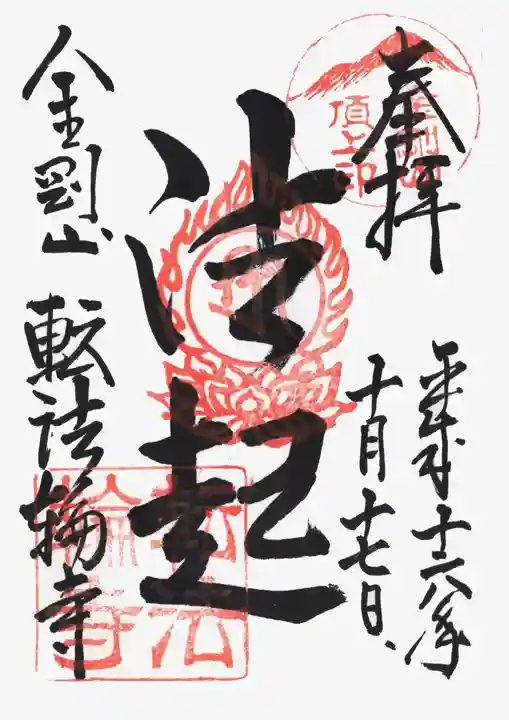 奉拝
金剛山
頂上印
平成十六年
十月十七日
法起
金剛山 転法輪寺
転法
輪寺